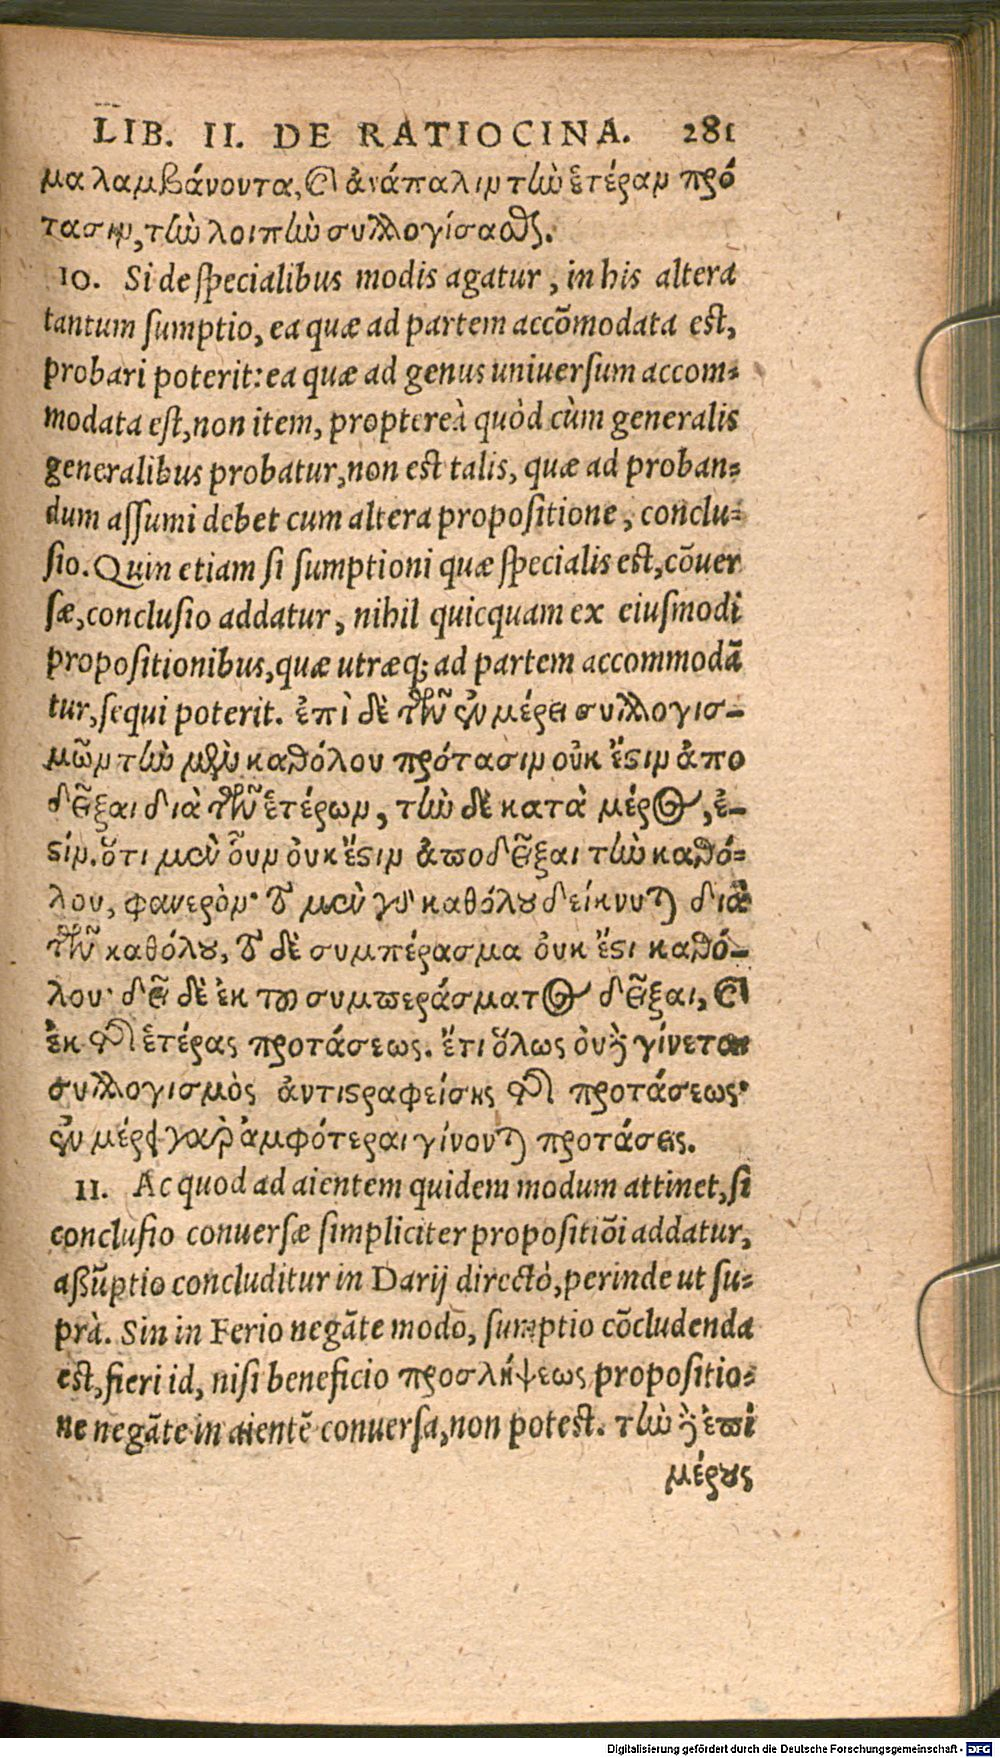 LIB. II. DE RATIOCINA. 281
μα λαμβάνοντα, καὶ ἀνάπαλιν τὴν ἑτέραν πρό
τασιν, τὴν λοιπὴν συλλογίσασθαι.
10. Si de specialibus modis agatur, in his altera
tantum sumptio, ea quæ ad partem accōmodata est,
probari poterit: ea quæ ad genus uniuersum accom-
modata est, non item, proptereà quòd cùm generalis
generalibus probatur, non est talis, quæ ad proban-
dum assumi debet cum altera propositione, conclu-
sio. Quin etiam si sumptioni quæ specialis est, cōuer
sæ, conclusio addatur, nihil quicquam ex eiusmodi
propositionibus, quæ utræq; ad partem accommodā
tur, sequi poterit. ἐπὶ δὲ τῶν ἐν μέρει συλλογισ-
μῶν τὴν μὲν καθόλου πρότασιν οὐκ ἔστιν ἀπο
δεῖξαι διὰ τῶν ἑτέρων, τὴν δὲ κατὰ μέρος, ἔ-
στιν. ὅτι μὲν οὖν οὐκ ἔστιν ἀποδεῖξαι τὴν καθό-
λου, φανερὸν· τὸ μὲν γὰρ καθόλου δείκνυται διὰ
τῶν καθόλου, τὸ δὲ συμπέρασμα οὐκ ἔστι καθό-
λου· δεῖ δὲ ἐκ τοῦ συμπεράσματος δεῖξαι, καὶ
ἐκ τῆς ἑτέρας προτάσεως. ἔτι ὅλως οὐδὲ γίνεται
συλλογισμὸς ἀντιστραφείσης τῆς προτάσεως·
ἐν μέρει γὰρ ἀμφότεραι γίνονται προτάσεις.
11. Ac quod ad aientem quidem modum attinet, si
conclusio conuersæ simpliciter propositiōi addatur,
assūptio concluditur in Darij directò, perinde ut su-
prà. Sin in Ferio negāte modo, sumptio cōcludenda
est, fieri id, nisi beneficio προσλήψεως propositio-
ne negāte in aientē conuersa, non potest. τὴν δὲ ἐπὶ
μέρους
Digitalisierung gefördert durch die Deutsche Forschungsgemeinschaft - DFG